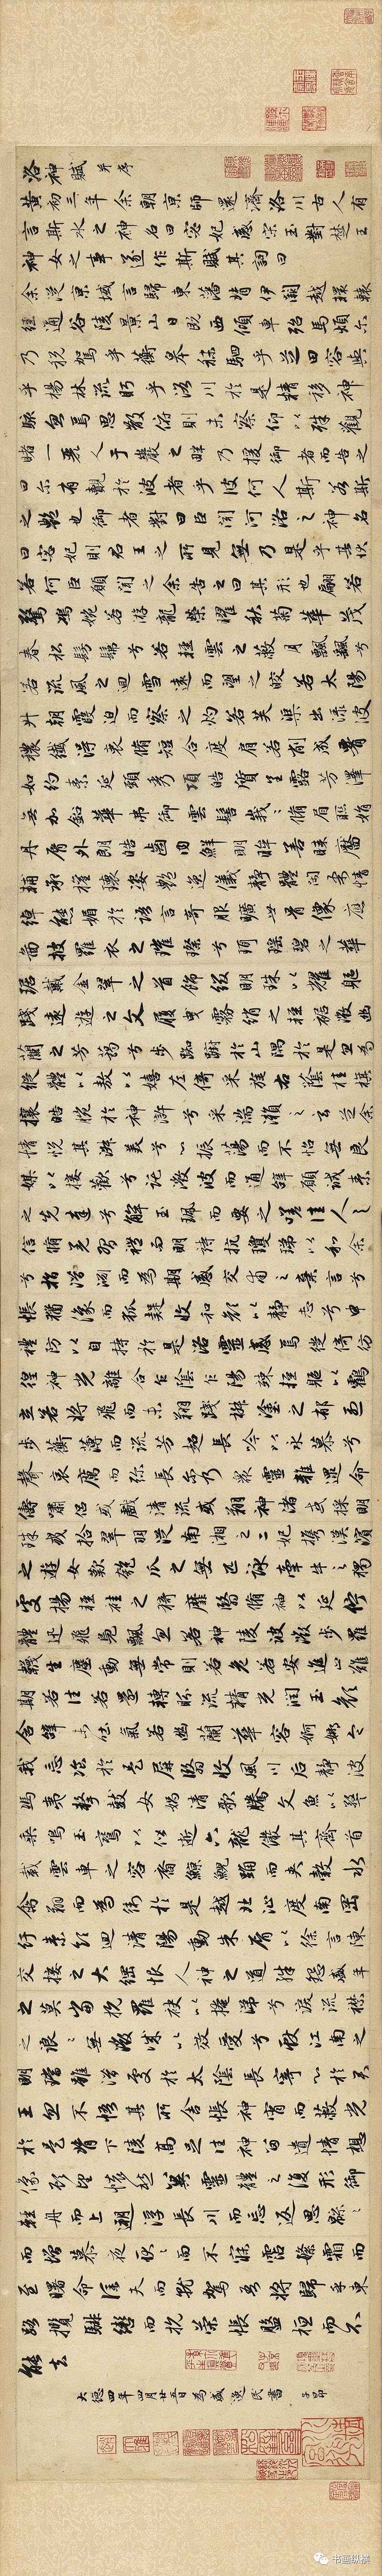 洛神賦 并序
黃初三年余朝京師還濟洛川古人有
言斯水之神名曰宓妃感宋玉對楚王
神女之事遂作斯賦其詞曰
余從京域言歸東藩背伊闕越轘轅
經通谷陵景山日既西傾車殆馬煩尔
乃税駕乎蘅皋秣駟乎芝田容與
乎楊林流眄乎洛川於是精移神
駭忽焉思散俯則未察仰以殊觀
睹一麗人于巖之畔乃援御者而告之
曰尔有覿於彼者乎彼何人斯若斯
之艷也御者對曰臣聞河洛之神名
曰宓妃則君王之所見無乃是乎其狀
若何臣願聞之余告之曰其形也翩若
驚鴻婉若游龍榮曜秋菊華茂
春松髣髴兮若輕雲之蔽月飄飄兮
若流風之迴雪遠而望之皎若太陽
升朝霞迫而察之灼若芙蕖出淥波
穠纖得衷脩短合度肩若削成腰
如約素延頸秀項皓質呈露芳澤
無加鉛華弗御雲髻峩峩脩眉聯娟
丹脣外朗皓齒内鮮明眸善睞靨
輔承權瓌姿艷逸儀靜體閑柔情
綽態媚於語言奇服曠世骨像應
圖披羅衣之璀璨兮珥瑶碧之華
琚戴金翠之首飾綴明珠以耀軀
踐遠遊之文履曳霧綃之輕裾微幽
蘭之芳藹兮步踟躕於山隅於是忽焉
縱體以敖以嬉左倚采旄右蔭桂旗
攘皓腕於神滸兮采湍瀨之玄芝余
情悦其淑美兮心振蕩而不怡無良
媒以接歡兮託微波而通辭願誠素
之先達兮解玉珮而要之嗟佳人之
信脩羌習禮而明詩抗瓊珶以和余
兮指潛淵而為期感交甫之棄言兮
悵猶豫而狐疑收和顔以靜志兮申
禮防以自持於是洛靈感焉徙倚彷
徨神光離合乍陰乍陽竦輕軀以鶴
立若將飛而未翔踐椒塗之郁烈
步蘅薄而流芳超長吟以永慕兮
聲哀厲而弥長尔乃衆靈雜遝命
儔嘯侣或戲清流或翔神渚或採明
珠或拾翠羽從南湘之二妃攜漢濱
之遊女歎匏瓜之無匹詠牽牛之獨
處揚輕袿之猗靡翳脩袖以延佇
體迅飛鳧飄忽若神陵波微步羅
襪生塵動無常則若危若安進止難
期若往若還轉眄流精光潤玉顔
含辭未吐氣若幽蘭華容婀娜令
我忘飡於是屏翳收風川后靜波
馮夷擊鼓女媧清歌騰文魚以警
乘鳴玉鸞以偕逝六龍儼其齊首
載雲車之容裔鯨鯢踴而夾轂水
禽翔而為衛於是越北沚度南岡
紆素領迴清陽動朱脣以徐言陳
交接之大綱悵人神之道殊怨盛年
之莫當抗羅袂以掩涕兮淚流襟
之浪浪無微情以效愛兮獻江南之
明璫雖潛處於太陰長寄心於君
王忽不悟其所舍悵神宵而蔽光
於是背下陵高足往神留遺情想
像顧望懷愁冀靈體之復形御
輕舟而上遡浮長川而忘返思緜緜
而增慕夜耿耿而不寐霑繁霜而
至曙命僕夫而就駕吾將歸乎東
路攬騑轡而抗策悵盤桓而不
能去
大德四年四月廿五日為盛逸民書 子昂
书画纵横